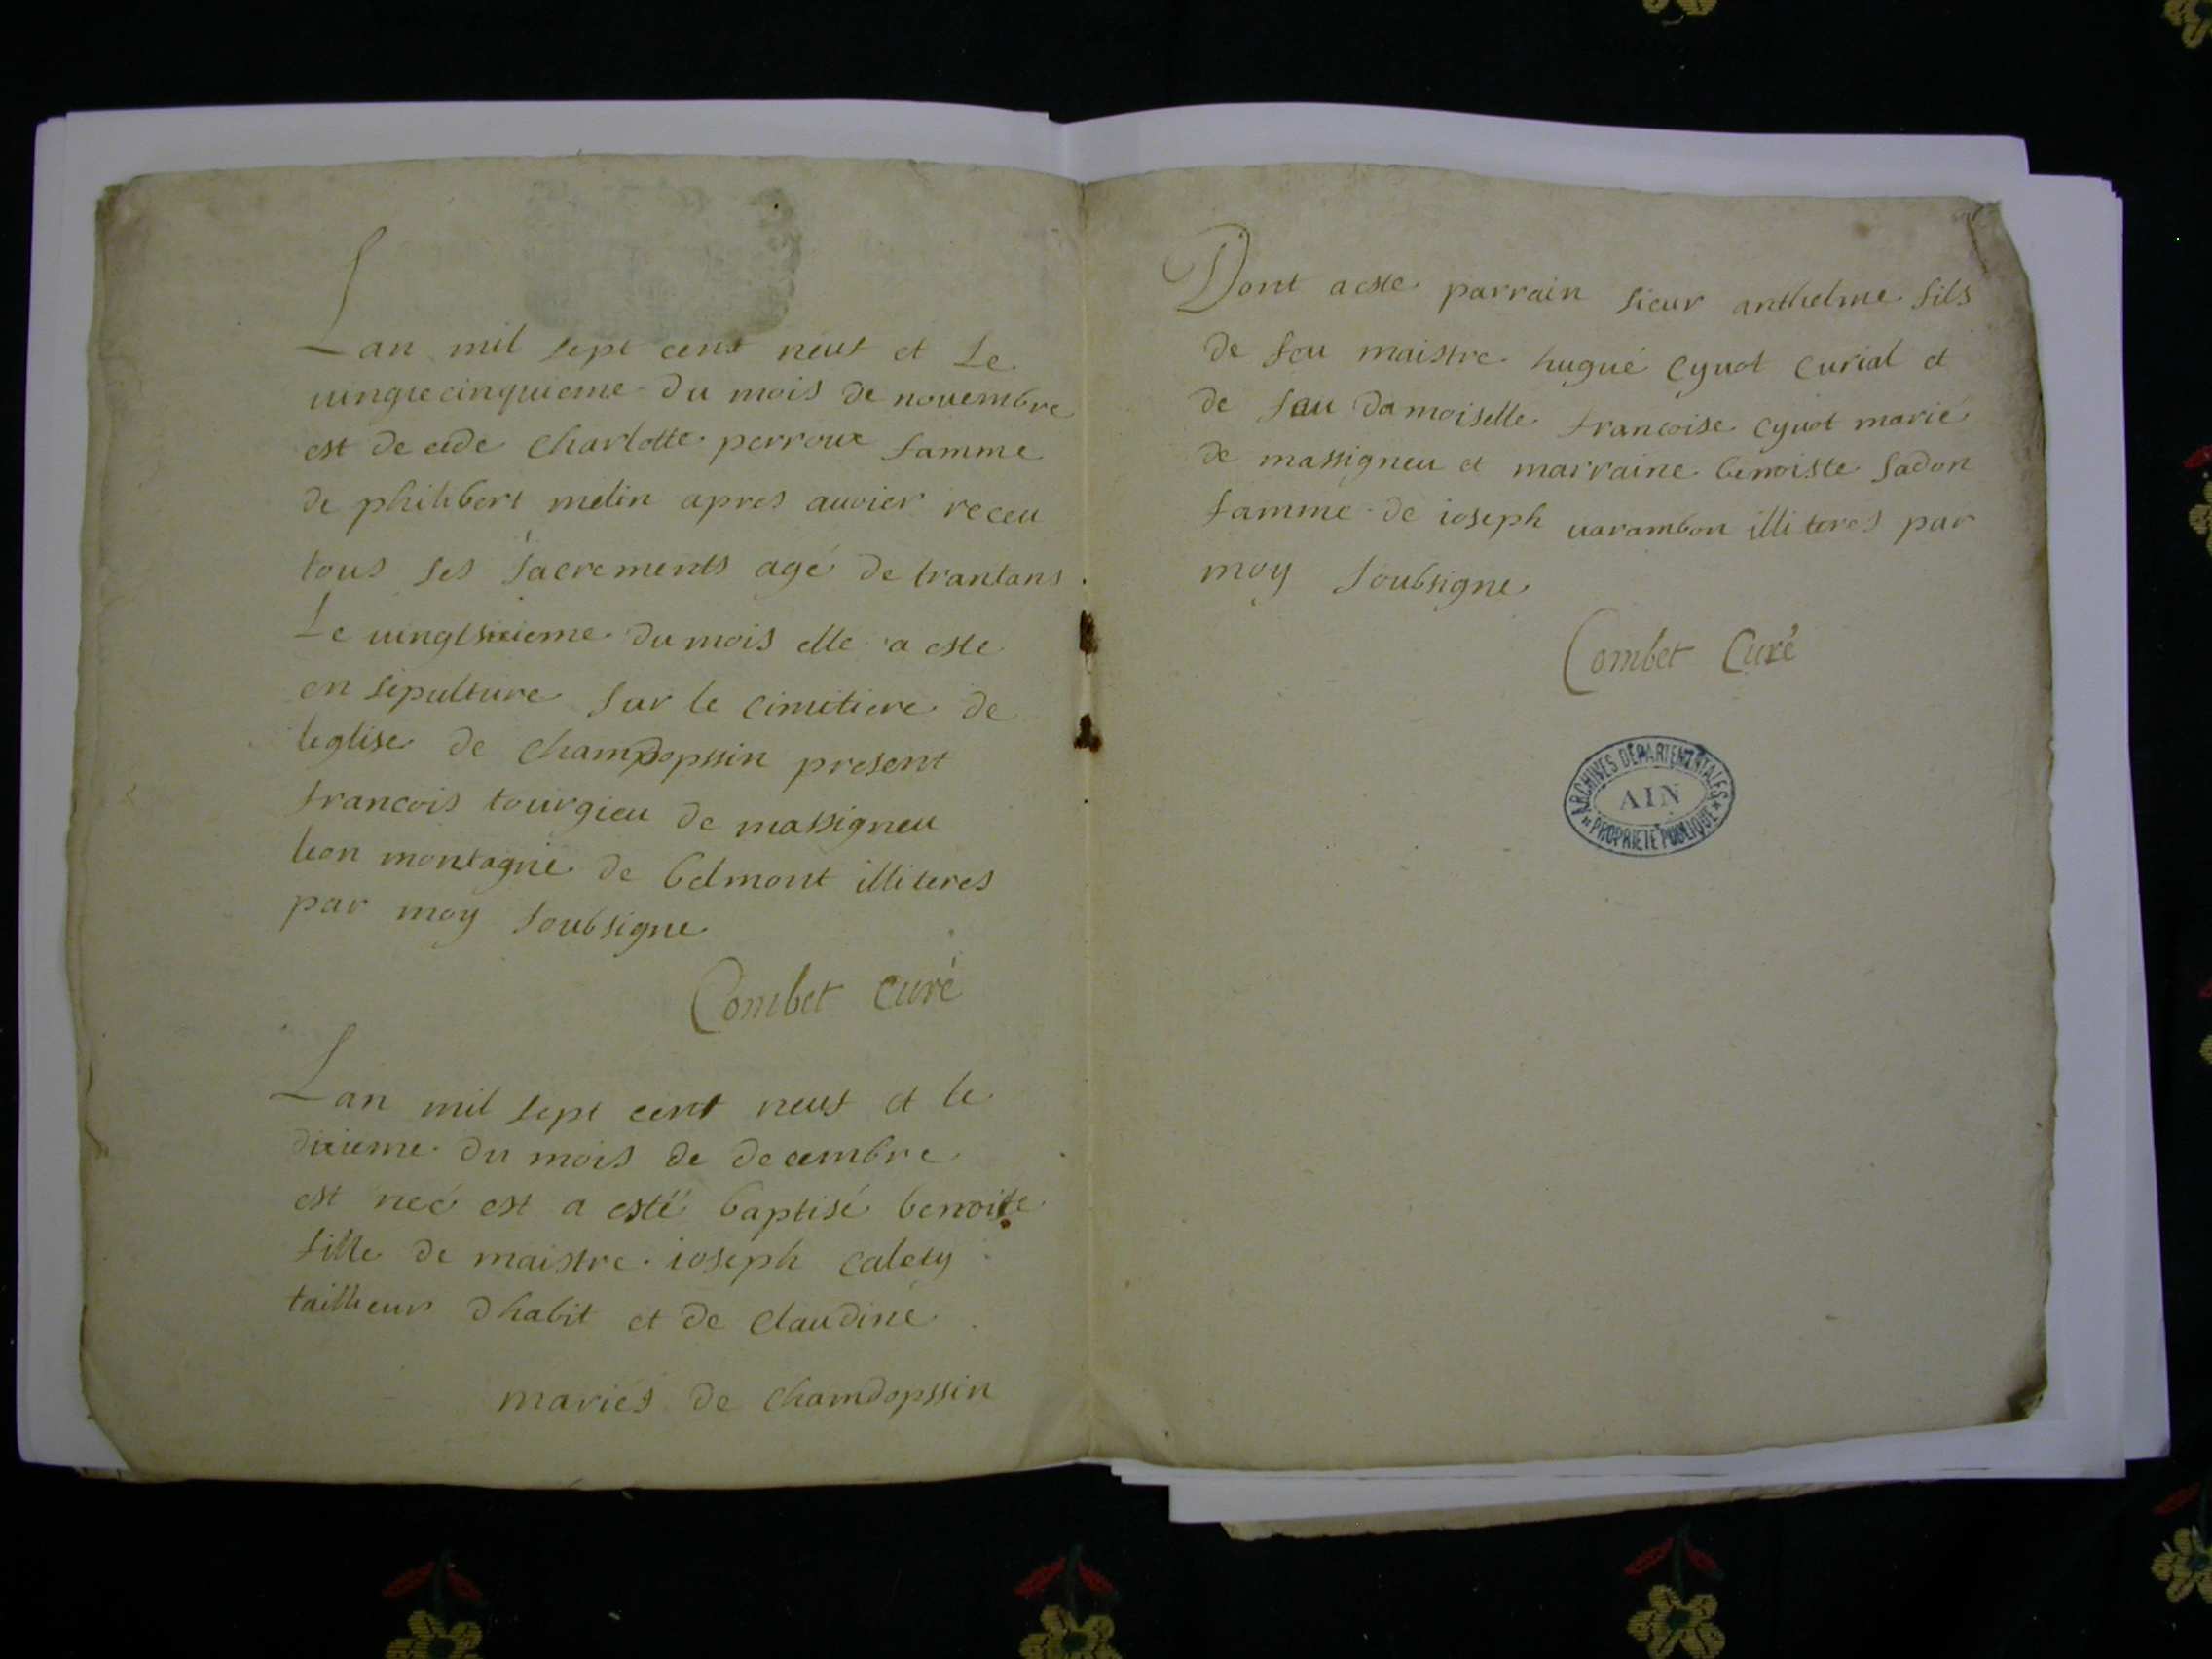 Lan mil sept cent neuf et Le
uingtecinquieme du mois de nouembre
est de cede Charlotte perroux famme
de philibert melin apres auoier receu
tous ses sacrements agé de trantans
Le uingtsixieme du mois elle a este
en sepulture sur le cimitiere de
leglise de Champdopssin present
francois tourgieu de massigneu
leon montagnie de belmont illiteres
par moy soubsigne
Combet curé
Lan mil sept cent neuf et le
dixieme du mois de decembre
est neé est a esté baptisé benoite
fille de maistre ioseph calety
tailheur dhabit et de claudine
mariés de Chamdopssin
Dont a este parrain sieur anthelme fils
de feu maistre hugue cyuot curial et
de feu damoiselle francoise cyuot marié
de massigneu et marraine benoiste fadon
famme de ioseph uarambon illiteres par
moy soubsigne
Combet Curé
ARCHIVES DÉPARTEMENTALES
AIN
PROPRIÉTÉ PUBLIQUE